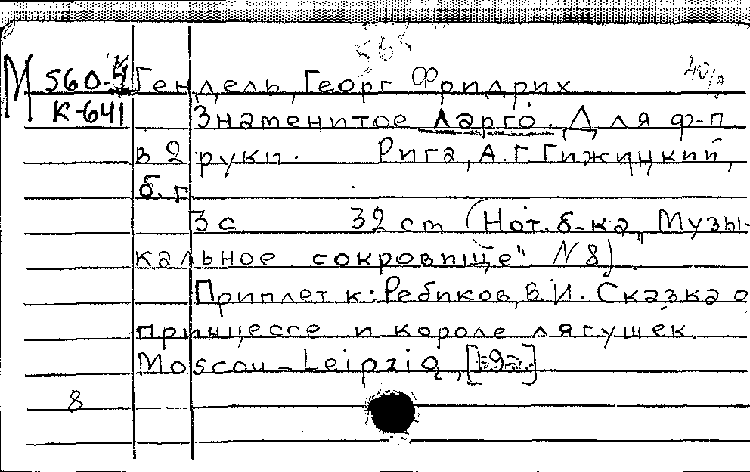 М 560-4 Гендель, Георг Фридрих
К-641 Знаменитое Ларго. Для ф-п
в 2 руки. Рига, А.Г. Гижицкий,
б.г.
3 с 32 cm (Нот. б-ка „Музы-
кальное сокровище" N 8)
Приплет к: Ребиков, В.И. Сказка о
принцессе и короле лягушек.
Moscou-Leipzig,
8